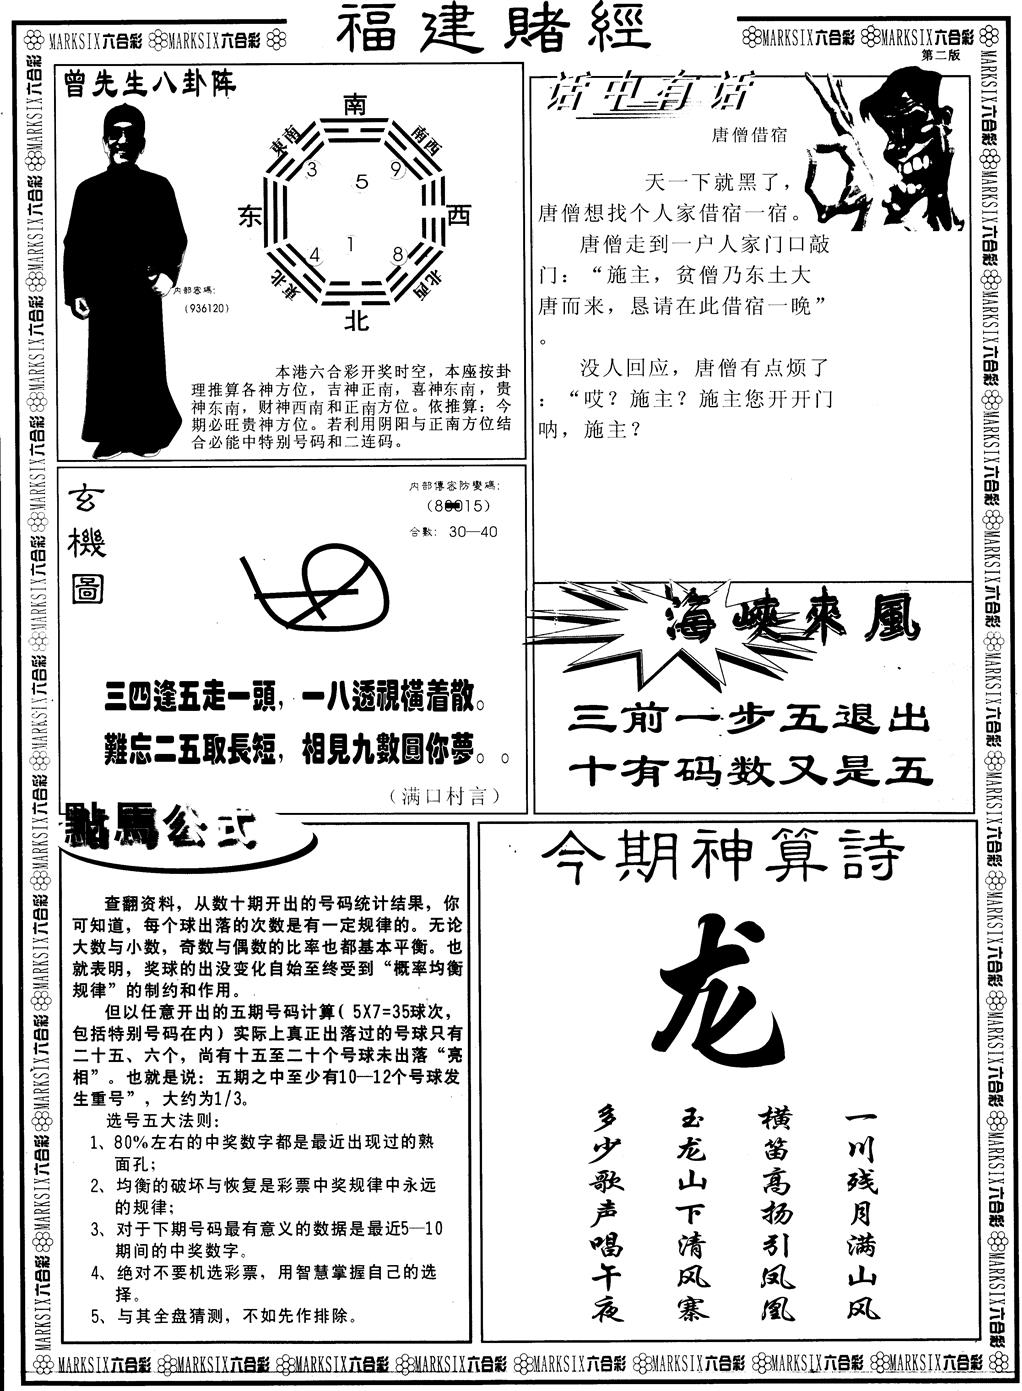 福建賭經
MARKSIX六合彩 MARKSIX六合彩
MARKSIX六合彩 MARKSIX六合彩
第二版
曾先生八卦阵
南
東南
南西
3
9
5
东
西
1
4
8
東北
北西
北
内部密碼:
(936120)
本港六合彩开奖时空，本座按卦
理推算各神方位，吉神正南，喜神东南，贵
神东南，财神西南和正南方位。依推算：今
期必旺贵神方位。若利用阴阳与正南方位结
合必能中特别号码和二连码。
话中有话
唐僧借宿
天一下就黑了，
唐僧想找个人家借宿一宿。
唐僧走到一户人家门口敲
门：“施主，贫僧乃东土大
唐而来，恳请在此借宿一晚”
。
没人回应，唐僧有点烦了
：“哎？施主？施主您开开门
呐，施主？
玄機圖
内部傳密防變碼:
合數: 30—40
三四逢五走一頭，一八透視橫着散。
難忘二五取長短，相見九數圓你夢。。
（满口村言）
海峽來風
三前一步五退出
十有码数又是五
點馬公式
查翻资料，从数十期开出的号码统计结果，你
可知道，每个球出落的次数是有一定规律的。无论
大数与小数，奇数与偶数的比率也都基本平衡。也
就表明，奖球的出没变化自始至终受到“概率均衡
规律”的制约和作用。
但以任意开出的五期号码计算( 5X7=35球次,
包括特别号码在内) 实际上真正出落过的号球只有
二十五、六个，尚有十五至二十个号球未出落“亮
相”。也就是说：五期之中至少有10—12个号球发
生重号”，大约为1/3。
选号五大法则:
1、80%左右的中奖数字都是最近出现过的熟
面孔;
2、均衡的破坏与恢复是彩票中奖规律中永远
的规律;
3、对于下期号码最有意义的数据是最近5—10
期间的中奖数字。
4、绝对不要机选彩票，用智慧掌握自己的选
择。
5、与其全盘猜测，不如先作排除。
今期神算詩
龙
一川残月满山风
横笛高扬引凤凰
玉龙山下清风寨
多少歌声唱午夜
MARKSIX六合彩 MARKSIX六合彩 MARKSIX六合彩 MARKSIX六合彩 MARKSIX六合彩 MARKSIX六合彩 MARKSIX六合彩 MARKSIX六合彩